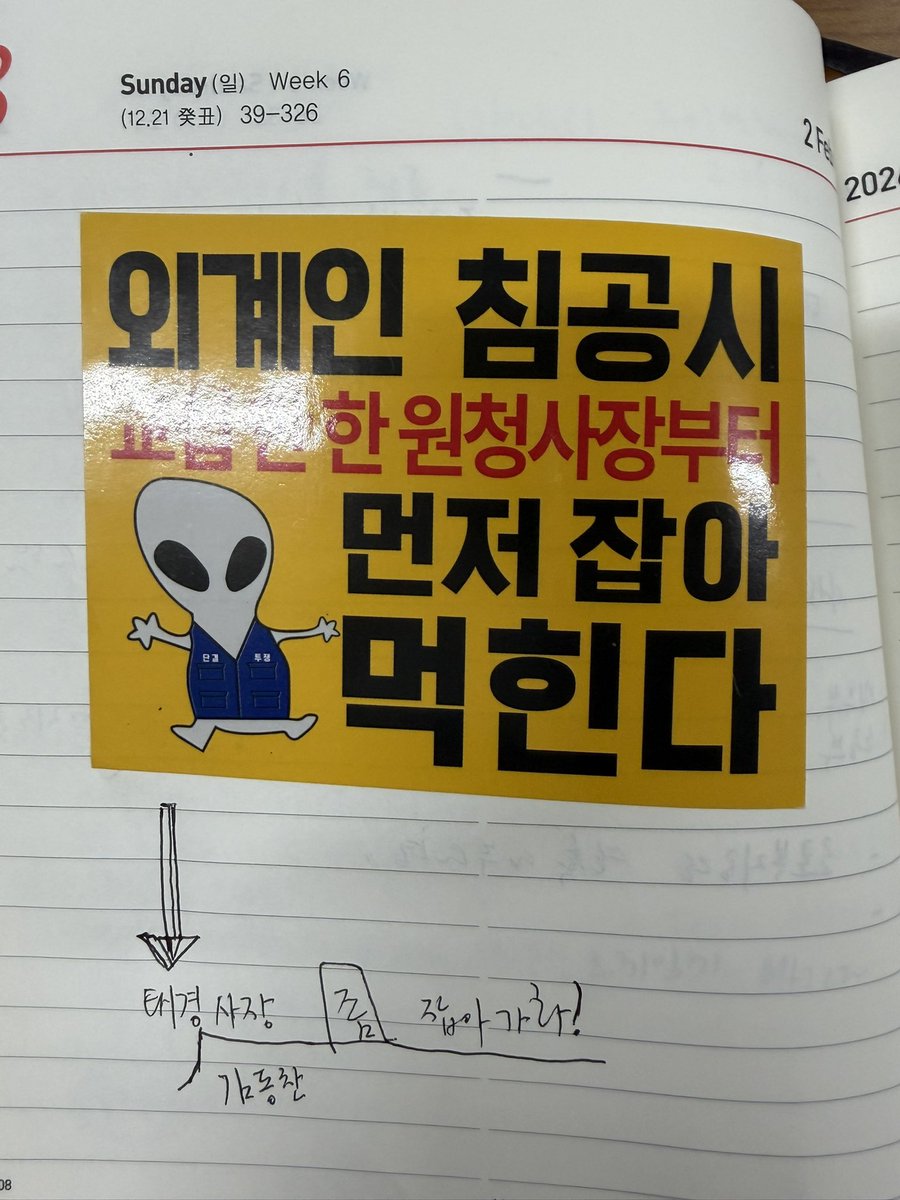 Sunday (일) Week 6
(12.21 癸丑) 39-326
2 Fe
외계인 침공시
한 원청사장부터
먼저 잡아
먹힌다
단결 투쟁
태경 사장 좀 잡아가라!
김동찬
08